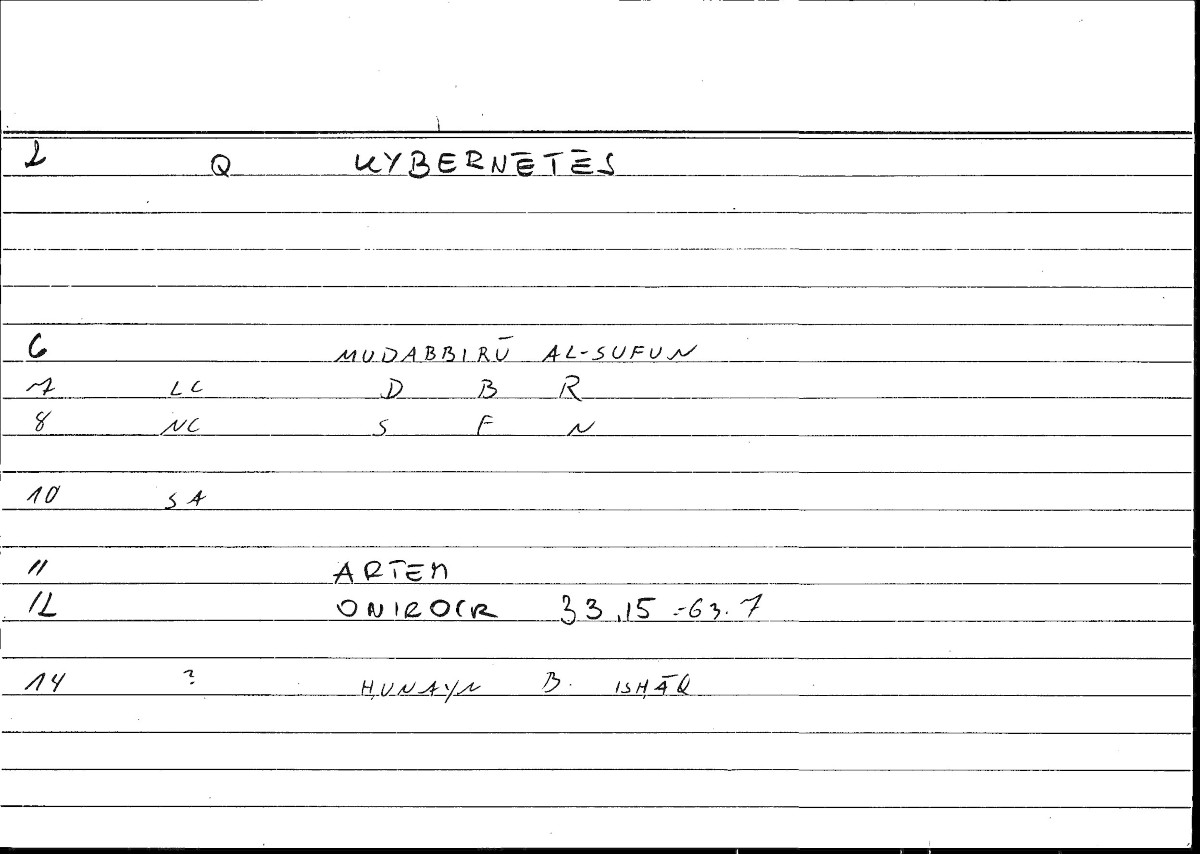 2 Q KYBERNĒTĒS
6 MUDABBIRŪ AL-SUFUN
7 LC D B R
8 NC S F N
10 SA
11 ARTEM
12 ONIROCR 33,15-63.7
14 ? ḤUNAYN B. ISḤĀQ